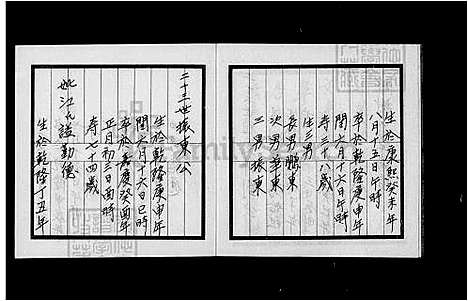 生於康熙癸未年
八月十五日午時
卒於乾隆庚申年
閏六月十六日午時
寿三十八歲
生三男
長男鵬東
次男華東
三男振東
二十三世振東公
生於乾隆庚申年
閏六月十六日巳時
卒於嘉慶癸酉年
正月初三日酉時
寿七十四歲
妣江氏諡勤儉
生於乾隆丁丑年